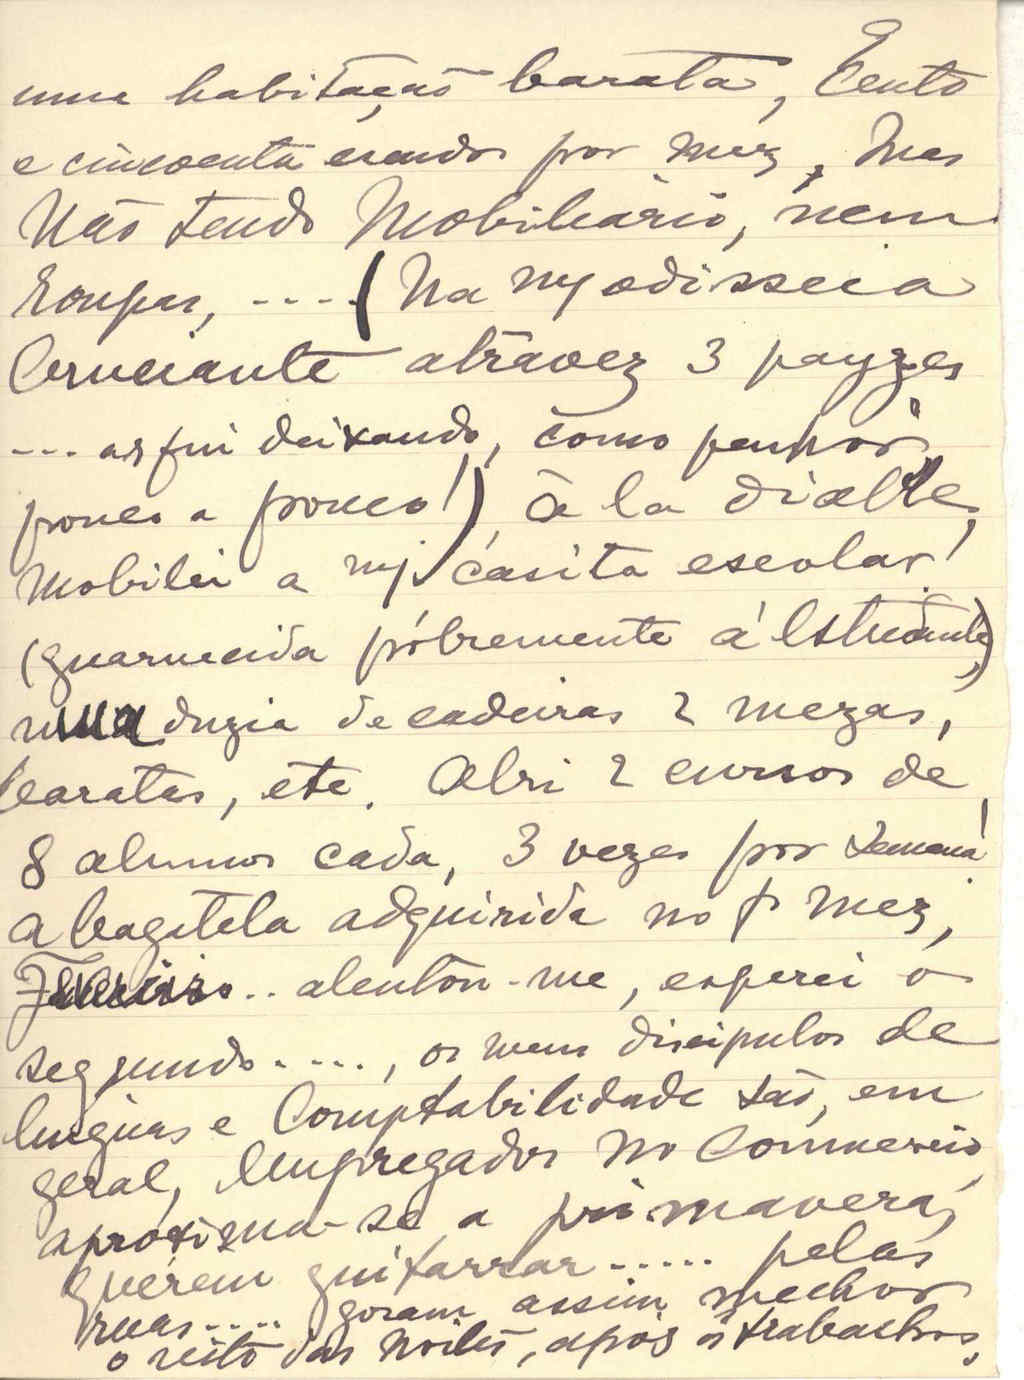 uma habitação barata, Cento
e cincoenta escudos por mez, Mas
Não tendo Mobiliario, nem
roupas, ----(Na mª odisseia
Cruciante atravez 3 payzes
--- as fui deixando, como penhor
pouco a pouco!) à la diable,
Mobilei a mª casita escolar!
(guarnecida póbremente á Estudante,)
uma duzia de cadeiras 2 mezas,
baratas, etc. Abri 2 cursos de
8 alumnos cada, 3 vezes por semana!
a bagatela adquirida no 1º mez,
Fevereiro.. alentou-me, esperei o
segundo...., os meus discipulos de
linguas e Comptabilidade são, em
geral, Empregados no Commercio,
aproxima-se a primavera,
querem guitarrar..... pelas
ruas..... gozam assim melhor
o resto das noites, após os trabalhos.